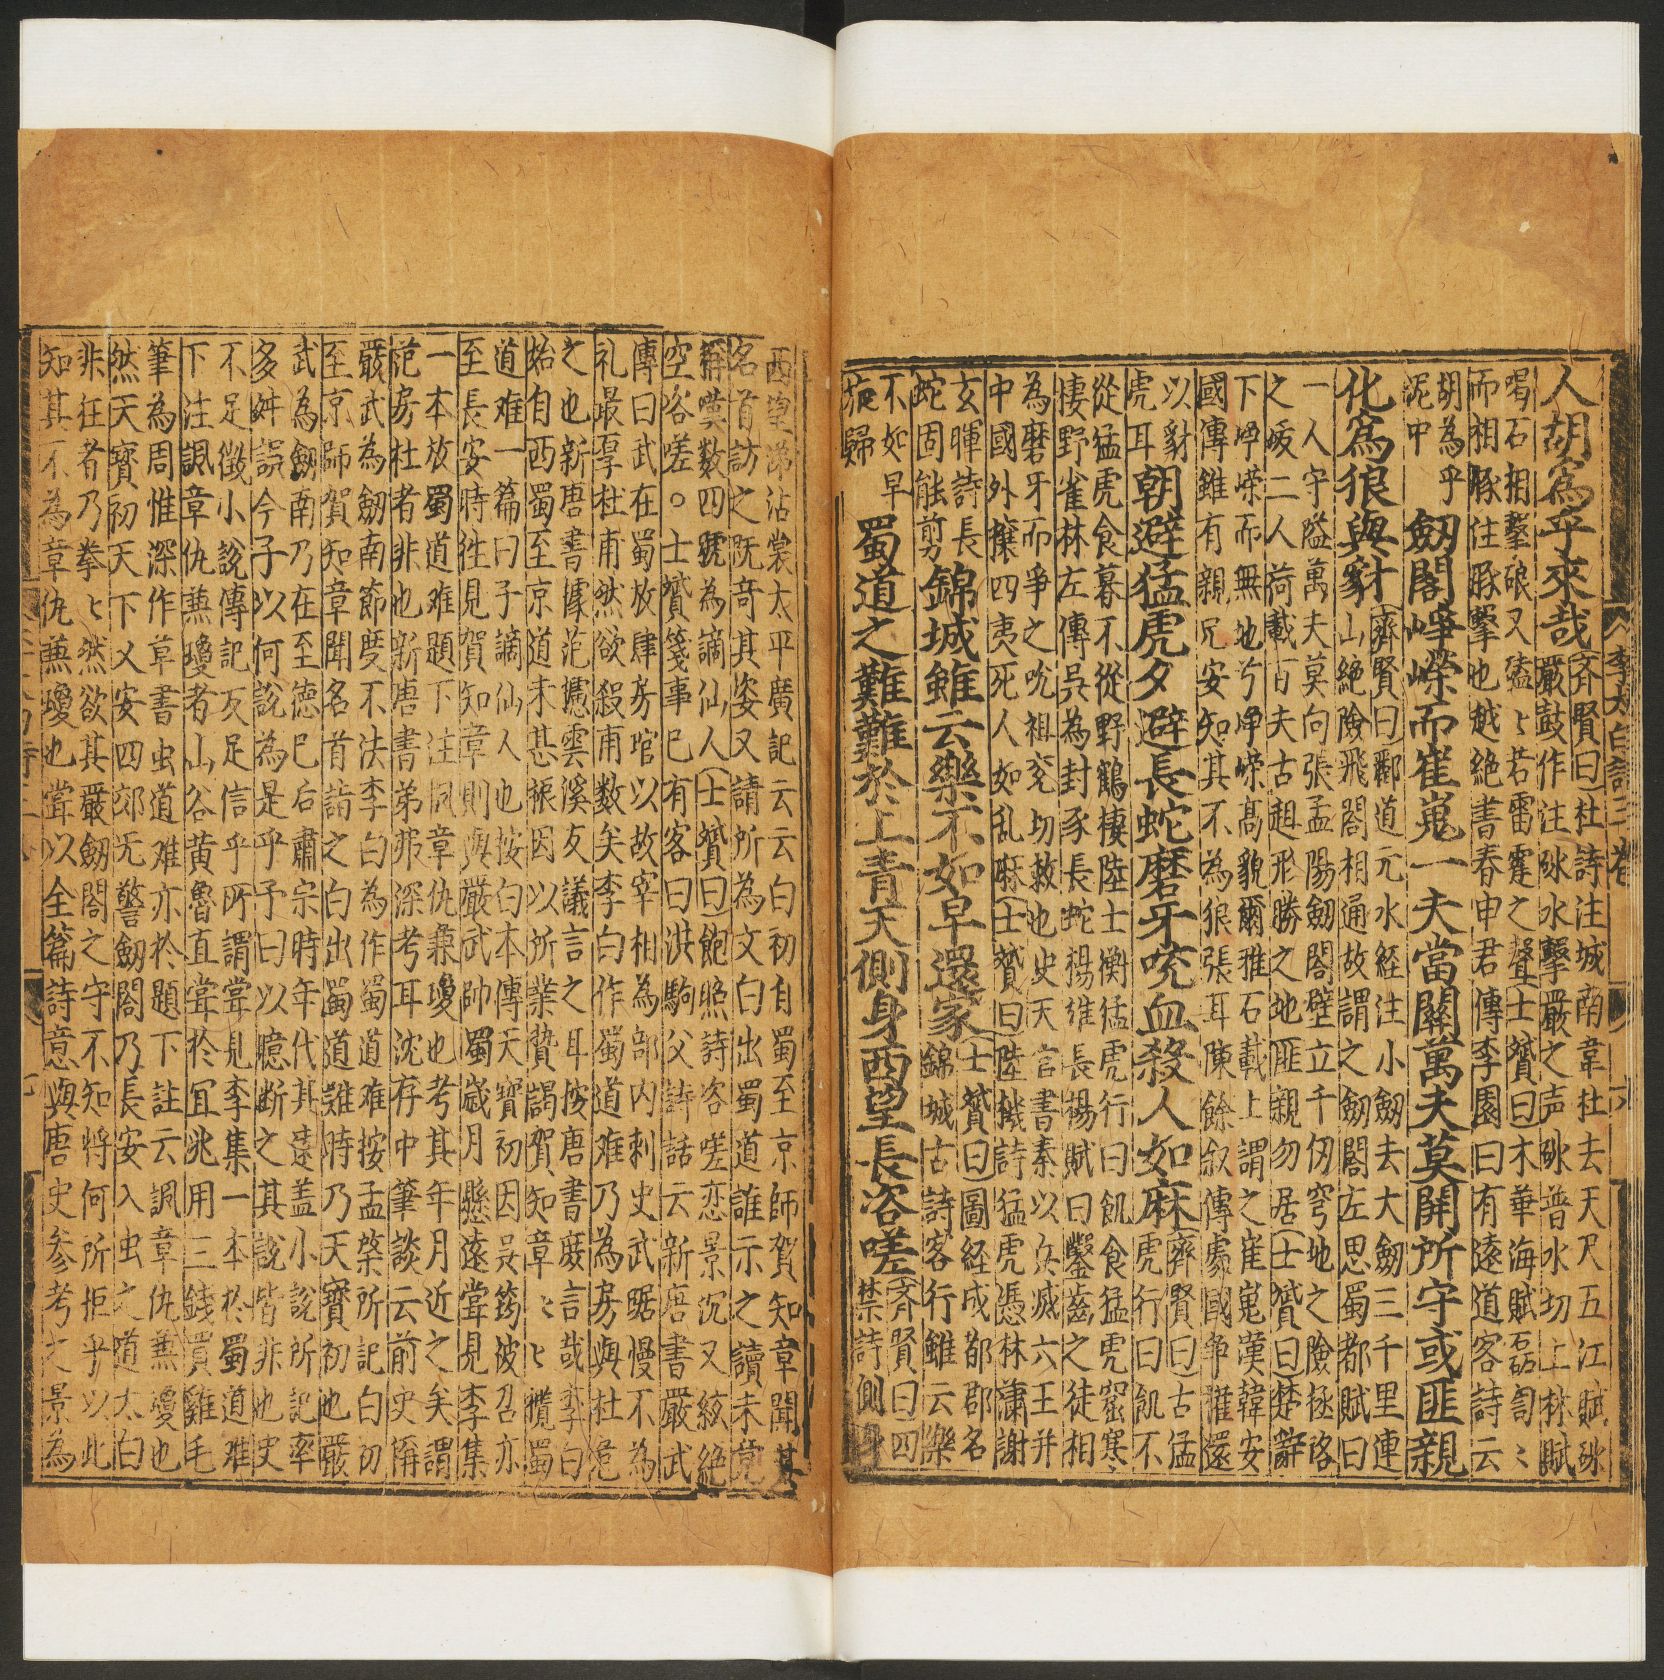 李太白詩三卷 六
人胡為乎來哉
齊賢曰杜詩注城南韋杜去天尺五江賦砯
巖鼓作注砯水擊巖之声砯普水切上林賦
喝石相擊硠又磕〻若雷霆之聲士贇曰木華海賦磊訇〻
而相豗住豗擊也越絶書春申君傳李園曰有遠道客詩云
胡為乎
泥中
劔閣崢嶸而崔嵬一夫當關萬夫莫開所守或匪親
化為狼與豺
齊賢曰酈道元水経注小劔去大劔三千里連
山絶險飛閣相通故謂之劔閣左思蜀都賦曰
一人守隘萬夫莫向張孟陽劔閣壁立千仞穷地之險極路
之峻二人荷戟百夫古趄形勝之地匪親勿居士贇曰楚辭
下崢嶸而無地兮崢嶸髙貌爾雅石載上謂之崔嵬漢韓安
國傳雖有親兄安知其不為狼張耳陳餘叙傳處國争權還
以豺
虎耳
朝避猛虎夕避長蛇磨牙吮血殺人如麻
齊賢曰古猛
虎行曰飢不
從猛虎食暮不從野鶴棲陸士衡猛虎行曰飢食猛虎窟寒〻
棲野雀林左傳吳為封豕長蛇揚雄長楊賦曰鑿齒之徒相
為磨牙而爭之吮祖兖切敕也史天官書秦以兵滅六王并
中國外攘四夷死人如乱麻士贇曰陸機詩猛虎憑林嘯謝
玄暉詩長
蛇固能剪
錦城雖云樂不如早還家
士贇曰圖経成都郡名
錦城古詩客行雖云樂
不如早
旋歸
蜀道之難難於上青天側身西望長咨嗟
齊賢曰四
愁詩側身
西望涕沾裳太平廣記云云白初自蜀至京師賀知章聞其
名首訪之既竒其姿又請所為文白出蜀道難示之讀未竟
稱嘆数四號為謫仙人士贇曰鮑照詩咨嗟恋景沉又絃絶
空咨嗟○士贇箋事已有客曰洪駒父詩話云新唐書嚴武
傳曰武在蜀放肆房琯以故宰相為部内刺史武踞慢不為
礼最厚杜甫然欲殺甫数矣李白作蜀道难乃為房與杜危
之也新唐書據范攄雲溪友議言之耳按唐書後言哉李白
始自西蜀至京道未甚振因以所業贄謁賀知章〻〻覽蜀
道难一篇曰子謫仙人也按白本傳天寳初因吳筠被召亦
至長安時往見賀知章則與嚴武帥蜀歲月懸遠嘗見李集
一本放蜀道难題下注諷章仇兼瓊也考其年月近之矣謂
范房杜者非也新唐書弟弗深考耳沈存中筆談云前史稱
嚴武為劔南節度不法李白為作蜀道难按孟棨所記白初
至京師賀知章聞名首詣之白出蜀道難時乃天寳初也嚴
武為劔南乃在至徳已后肅宗時年代甚遠盖小說所記率
多舛誤今子以何說為是乎予曰以臆断之其說皆非也史
不足徴小說傳記反足信乎所謂嘗見李集一本於蜀道难
下注諷章仇兼瓊者山谷黄魯直嘗於宜州用三錢買雞毛
筆為周惟深作草書虫道难亦於題下註云諷章仇兼瓊也
然天寳初天下乂安四郊无警劔閣乃長安入虫之道太白
非狂者乃拳〻然欲其嚴劔閣之守不知将何所拒乎以此
知其不為章仇兼瓊也嘗以全篇詩意與唐史参考之景為